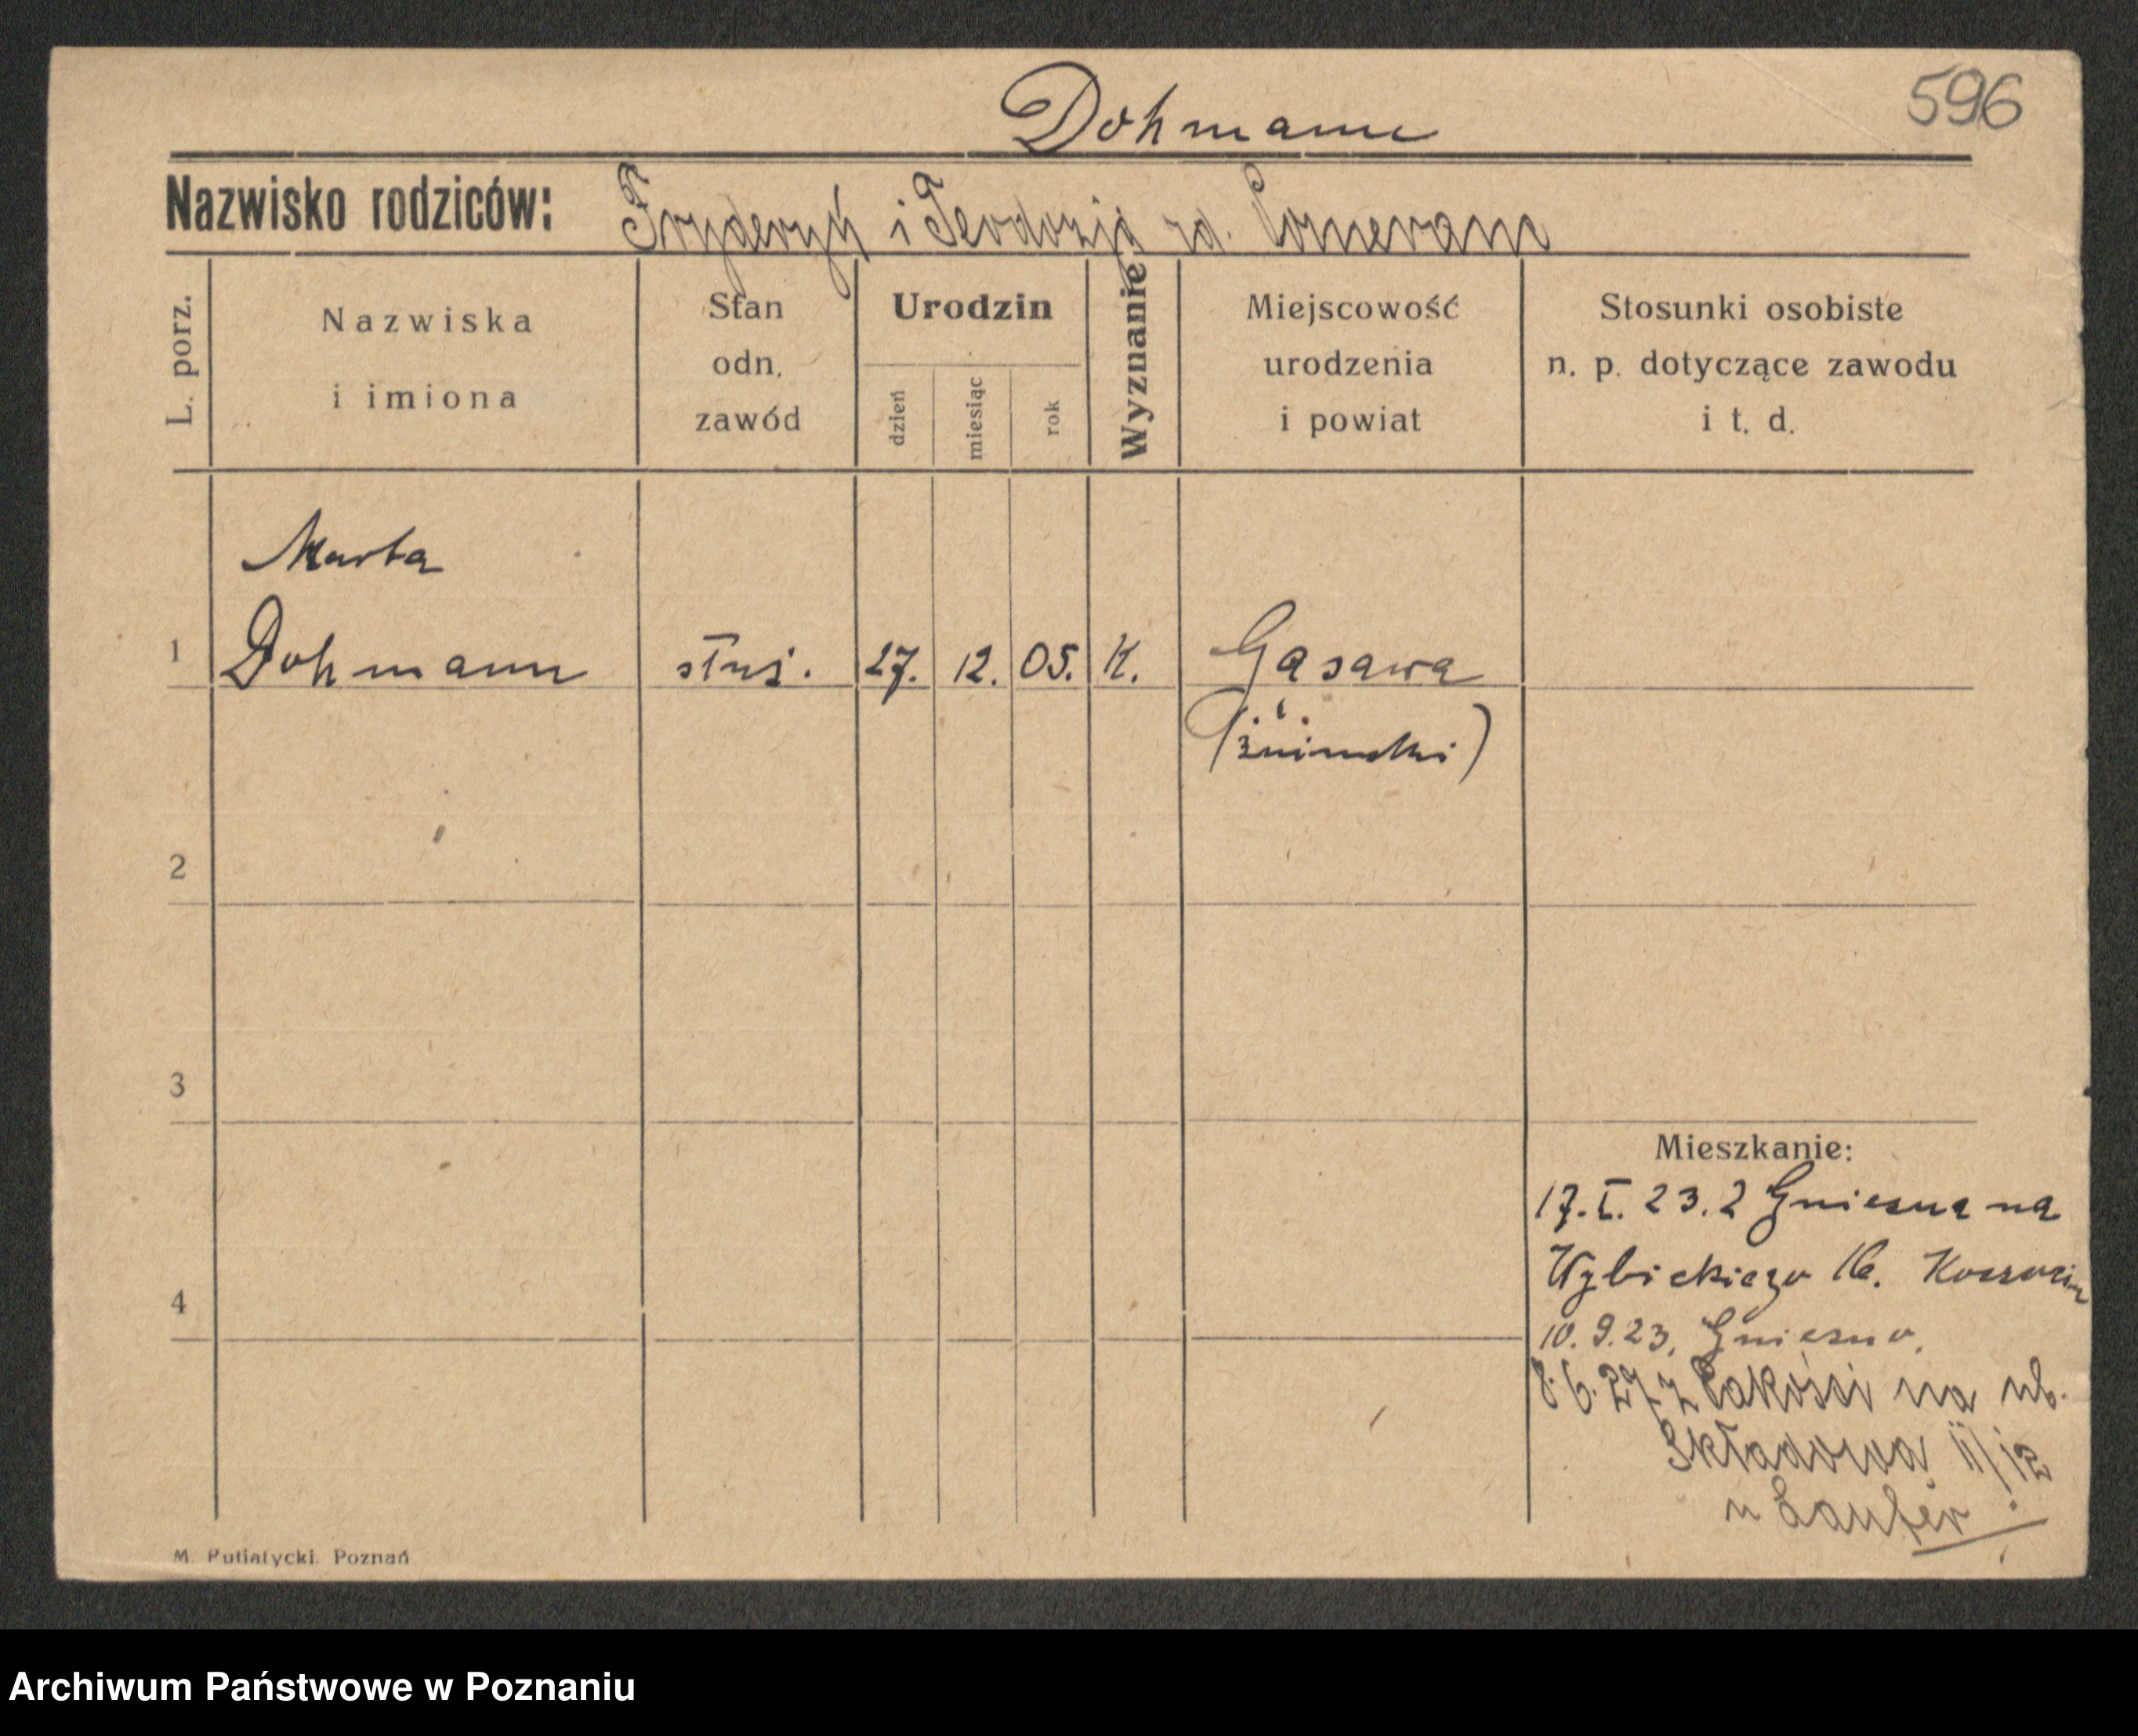 Dohmann
596
Nazwisko rodziców: Fryderyk i Teodozja zd.
L. porz.
Nazwiska i imiona
Stan odn. zawód
Urodzin
dzień
miesiąc
rok
Wyznanie
Miejscowość urodzenia i powiat
Stosunki osobiste n. p. dotyczące zawodu i t. d.
Marta
1 Dohmann służ. 27. 12. 05. K. Gąsawa
(żniński)
2
3
Mieszkanie:
17. I. 23. z Gniezna na
Wybickiego 16.
4
10. 9. 23. Gniezno.
8. 6. 27 z Pakości na ul.
Składowa 11/12
u
M. Putiatycki. Poznań
Archiwum Państwowe w Poznaniu